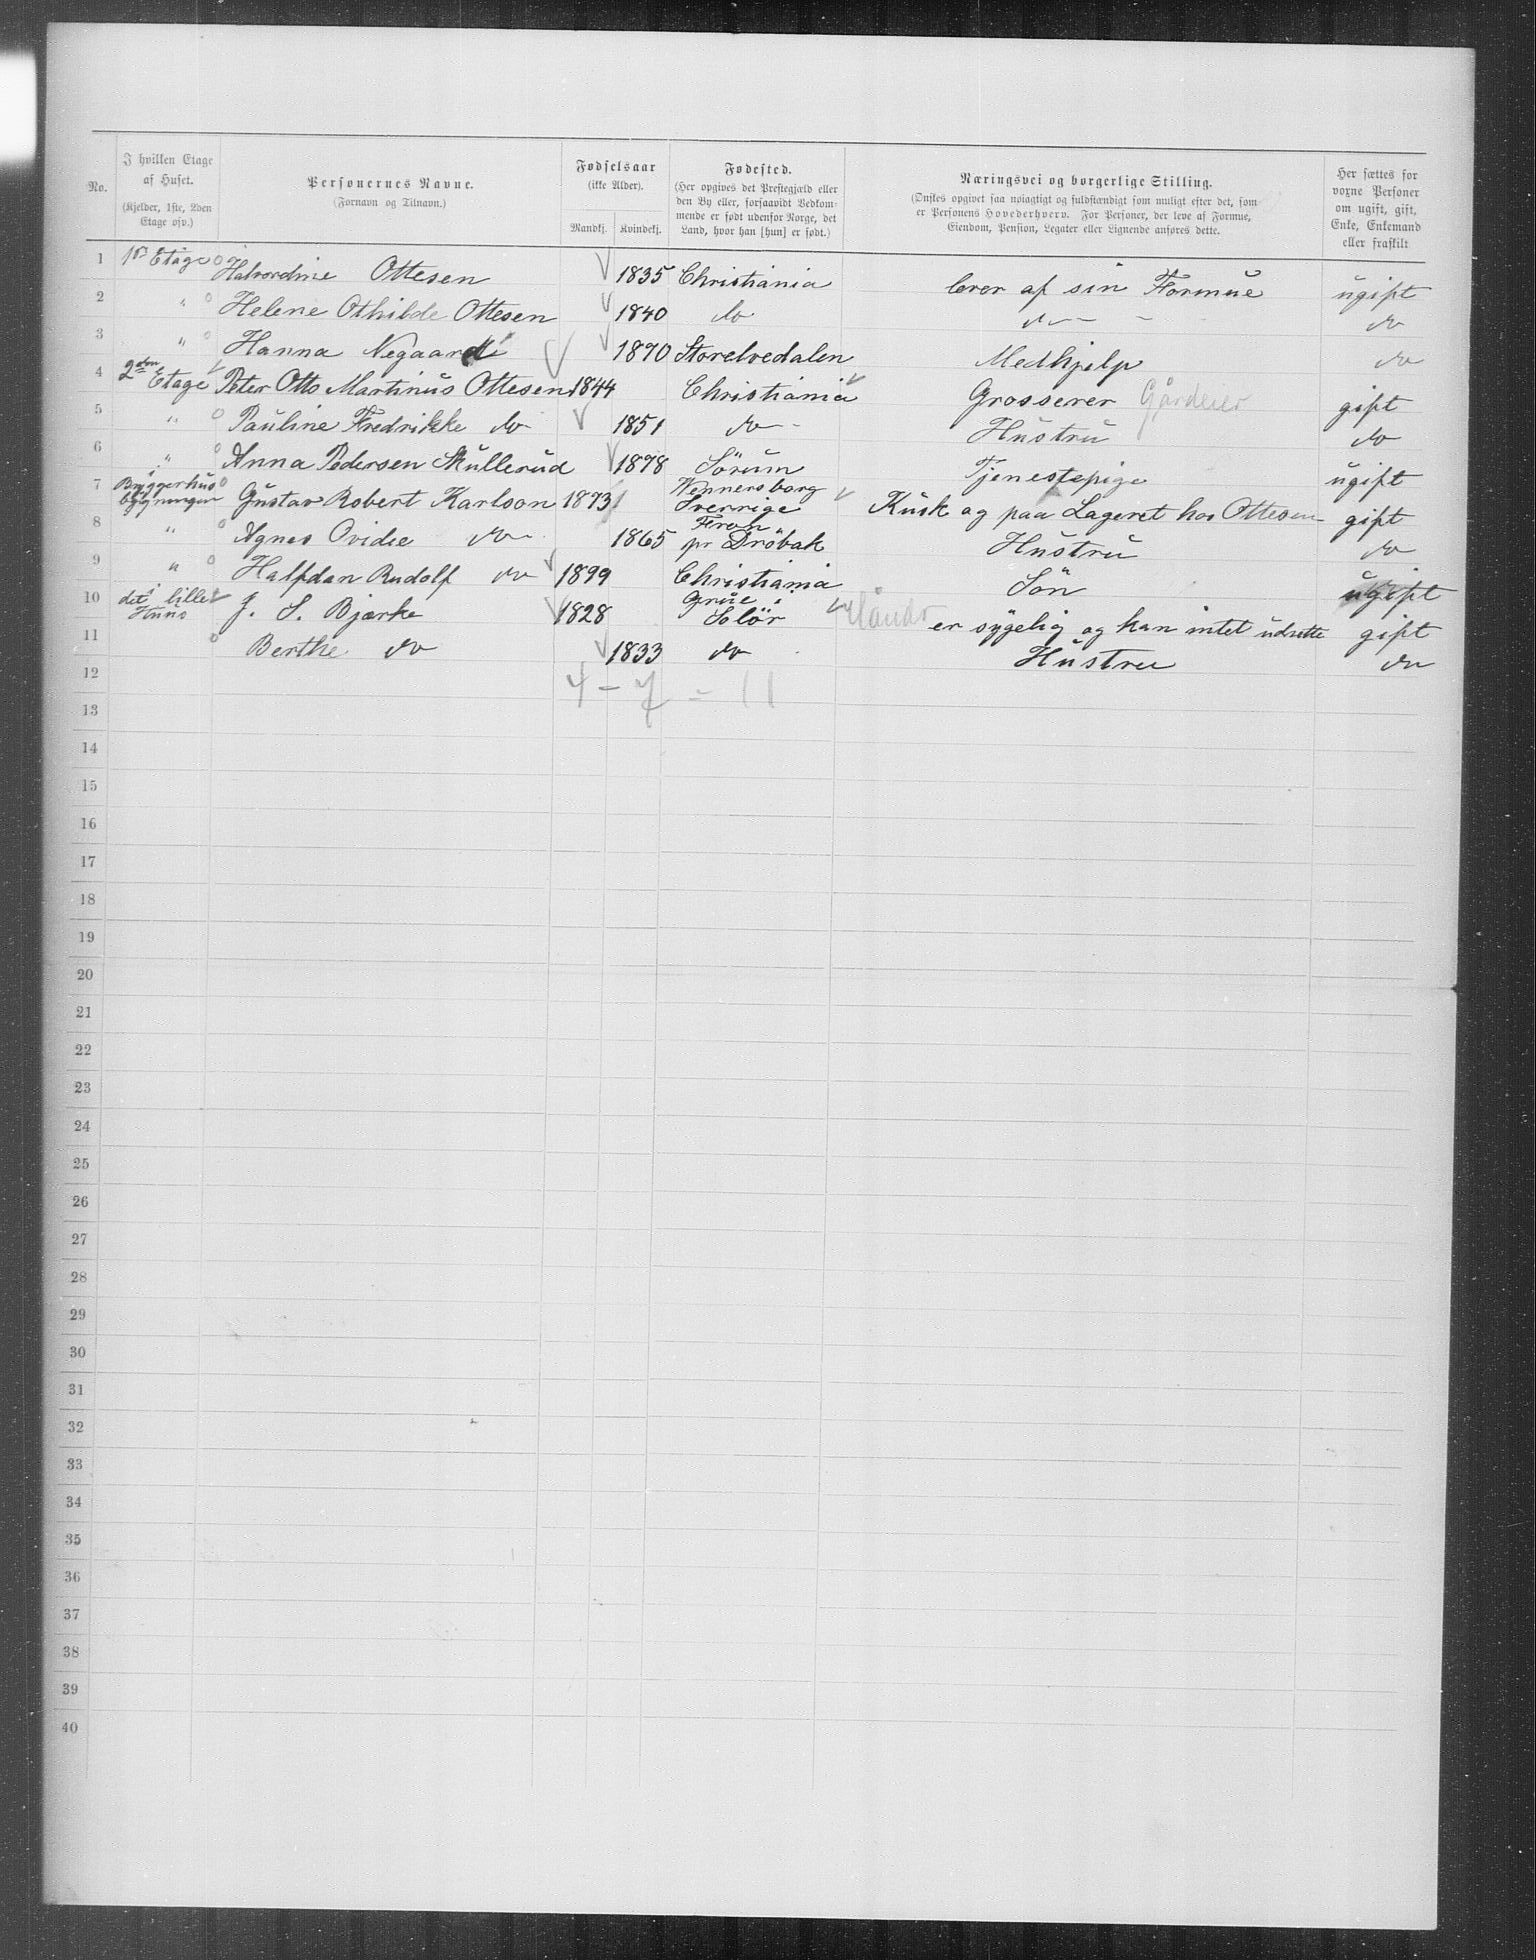 No.
I hvilken Etage
af Huset.
(Kjelder, 1ste, 2den
Etage osv.)
Personernes Navne.
(Fornavn og Tilnavn.)
Fødselsaar
(ikke Alder).
Mandkj. Kvindekj.
Fødested.
(Her opgives det Præstegjæld eller
den By eller, forsaavidt Vedkom-
mende er født udenfor Norge, det
Land, hvor han [hun] er født.)
Næringsvei og borgerlige Stilling.
(Ønskes opgivet saa nøiagtigt og fuldstændigt som muligt efter det, som
er Personens Hovederhverv. For Personer, der leve af Formue,
Eiendom, Pension, Legater eller Lignende anføres dette.
Her sættes for
voxne Personer
om ugift, gift,
Enke, Enkemand
eller fraskilt
1 1ste Etage Halvordine Ottesen 1835 Christiania lever af sin Formue ugift
2 " Helene Othilde Ottesen 1840 do do do
3 " Hanna Negaard 1870 Storelvedalen Medhjelp do
4 2den Etage Peter Otto Martinus Ottesen 1844 Christiania Grosserer Gårdeier gift
5 " Pauline Fredrikke do 1851 do Hustru do
6 " Anna Pedersen Skullerud 1878 Sörum Tjenestepige ugift
7 i Bryggerhus bygningen Gustav Robert Karlson 1873 Wennersborg Sverrige Kusk og paa Lageret hos Ottesen gift
8 " Agnes Ovidie do 1865 Frogn pr Dröbak Hustru do
9 " Halfdan Rudolf do 1899 Christiania Sön ugift
10 i det lille Huus J. S. Bjørke 1828 Grue i Solör er sygelig og kan intet udrette gift
11 Berthe do 1833 do Hustru do
12 4 - 7 = 11
13
14
15
16
17
18
19
20
21
22
23
24
25
26
27
28
29
30
31
32
33
34
35
36
37
38
39
40